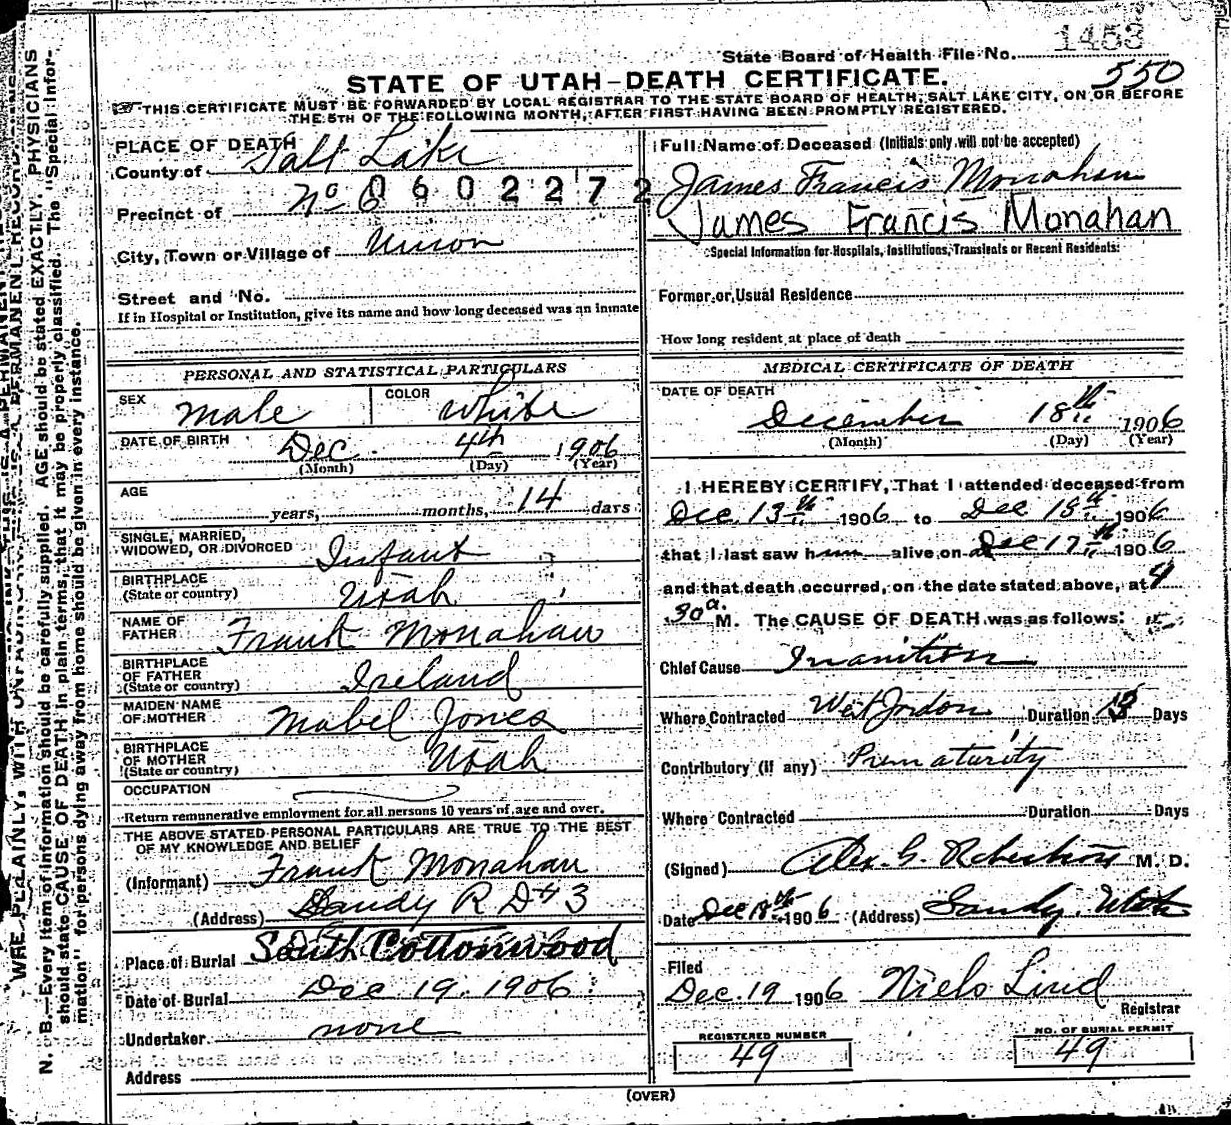 1453
State Board of Health File No.
550
STATE OF UTAH—DEATH CERTIFICATE.
THIS CERTIFICATE MUST BE FORWARDED BY LOCAL REGISTRAR TO THE STATE BOARD OF HEALTH, SALT LAKE CITY, ON OR BEFORE
THE 5TH OF THE FOLLOWING MONTH, AFTER FIRST HAVING BEEN PROMPTLY REGISTERED.
PLACE OF DEATH
County of Salt Lake
0602272
Precinct of No 6
City, Town or Village of Union
Street and No.
If in Hospital or Institution, give its name and how long deceased was an inmate
PERSONAL AND STATISTICAL PARTICULARS
SEX Male COLOR White
DATE OF BIRTH Dec. 4th 1906
(Month) (Day) (Year)
AGE years, months, 14 days
SINGLE, MARRIED,
WIDOWED, OR DIVORCED Infant
BIRTHPLACE
(State or country) Utah
NAME OF
FATHER Frank Monahan
BIRTHPLACE
OF FATHER
(State or country) Ireland
MAIDEN NAME
OF MOTHER Mabel Jones
BIRTHPLACE
OF MOTHER
(State or country) Utah
OCCUPATION
Return remunerative employment for all persons 10 years of age and over.
THE ABOVE STATED PERSONAL PARTICULARS ARE TRUE TO THE BEST
OF MY KNOWLEDGE AND BELIEF
(Informant) Frank Monahan
(Address) Sandy R D # 3
Place of Burial South Cottonwood
Date of Burial Dec 19. 1906
Undertaker none
Address
Full Name of Deceased (Initials only will not be accepted)
James Francis Monahan
James Francis Monahan
Special Information for Hospitals, Institutions, Transients or Recent Residents:
Former or Usual Residence
How long resident at place of death
MEDICAL CERTIFICATE OF DEATH
DATE OF DEATH
December 18th 1906
(Month) (Day) (Year)
I HEREBY CERTIFY, That I attended deceased from
Dec. 13th 1906 to Dec 18th 1906
that I last saw him alive on Dec 17th 1906
and that death occurred, on the date stated above, at 4
30 a. M. The CAUSE OF DEATH was as follows:
Chief Cause Inanition
Where Contracted West Jordon Duration 13 Days
Contributory (if any) Prematurity
Where Contracted Duration Days
(Signed) Alex. G. Robertson M. D.
Date Dec 18th 1906 (Address) Sandy, Utah
Filed
Dec. 19 1906 Niels Lind
Registrar
REGISTERED NUMBER
49
NO. OF BURIAL PERMIT
49
(OVER)
N. B.—Every item of information should be carefully supplied. AGE should be stated EXACTLY. PHYSICIANS
should state CAUSE OF DEATH in plain terms, that it may be properly classified. The "Special Infor-
mation" for persons dying away from home should be given in every instance.